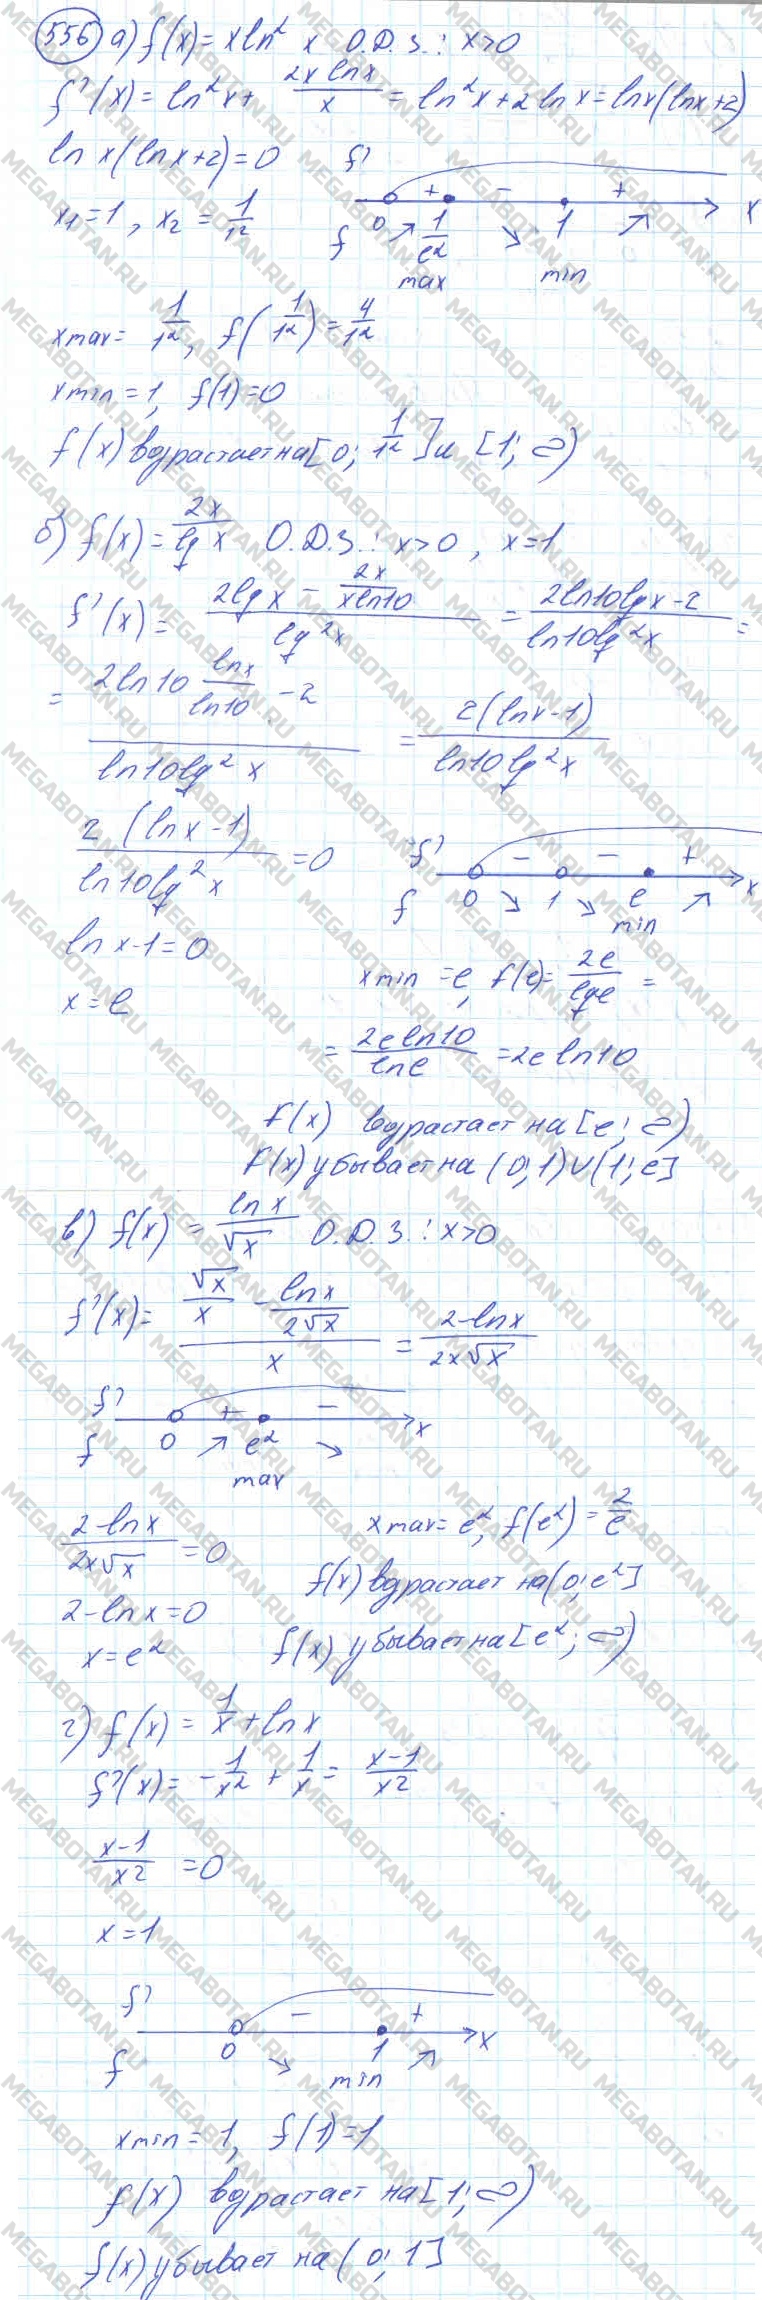 556 а) f(x) = x ln² x О.Д.З.: x>0
f'(x) = ln²x + 2x lnx / x = ln²x + 2 ln x = lnx(lnx+2)
ln x(lnx+2)=0 f'
+ - +
x₁=1, x₂ = 1/12
0 1/e² 1 x
f max min
xmax = 1/1², f(1/1²) = 4/1²
xmin = 1, f(1)=0
f(x) возрастает на [0; 1/1²] и [1; ∞)
б) f(x) = 2x / lg x О.Д.З.: x>0, x=1
f'(x) = (2lg x - 2x / xln10) / lg²x = (2ln10lgx-2) / ln10lg²x =
= (2ln10 lnx/ln10 - 2) / ln10lg² x = 2(lnx-1) / ln10lg²x
2 (lnx-1) / ln10lg²x = 0
f' - - +
f 0 1 e x
min
ln x-1=0
x = e
xmin = e, f(e) = 2e / lge =
= 2e ln10 / lne = 2e ln10
f(x) возрастает на [e; ∞)
f(x) убывает на (0;1)∪(1;e]
в) f(x) = ln x / √x О.Д.З.: x>0
f'(x) = (√x/x - lnx/2√x) / x = 2-lnx / 2x√x
f' + -
f 0 e² x
max
2-lnx / 2x√x = 0
2-ln x=0
x = e²
xmax = e², f(e²) = 2/e
f(x) возрастает на (0; e²]
f(x) убывает на [e²; ∞)
г) f(x) = 1/x + ln x
f'(x) = -1/x² + 1/x = x-1 / x²
x-1 / x² = 0
x = 1
f' - +
f 0 1 x
min
xmin = 1, f(1)=1
f(x) возрастает на [1; ∞)
f(x) убывает на (0; 1]
MEGABOTAN.RU